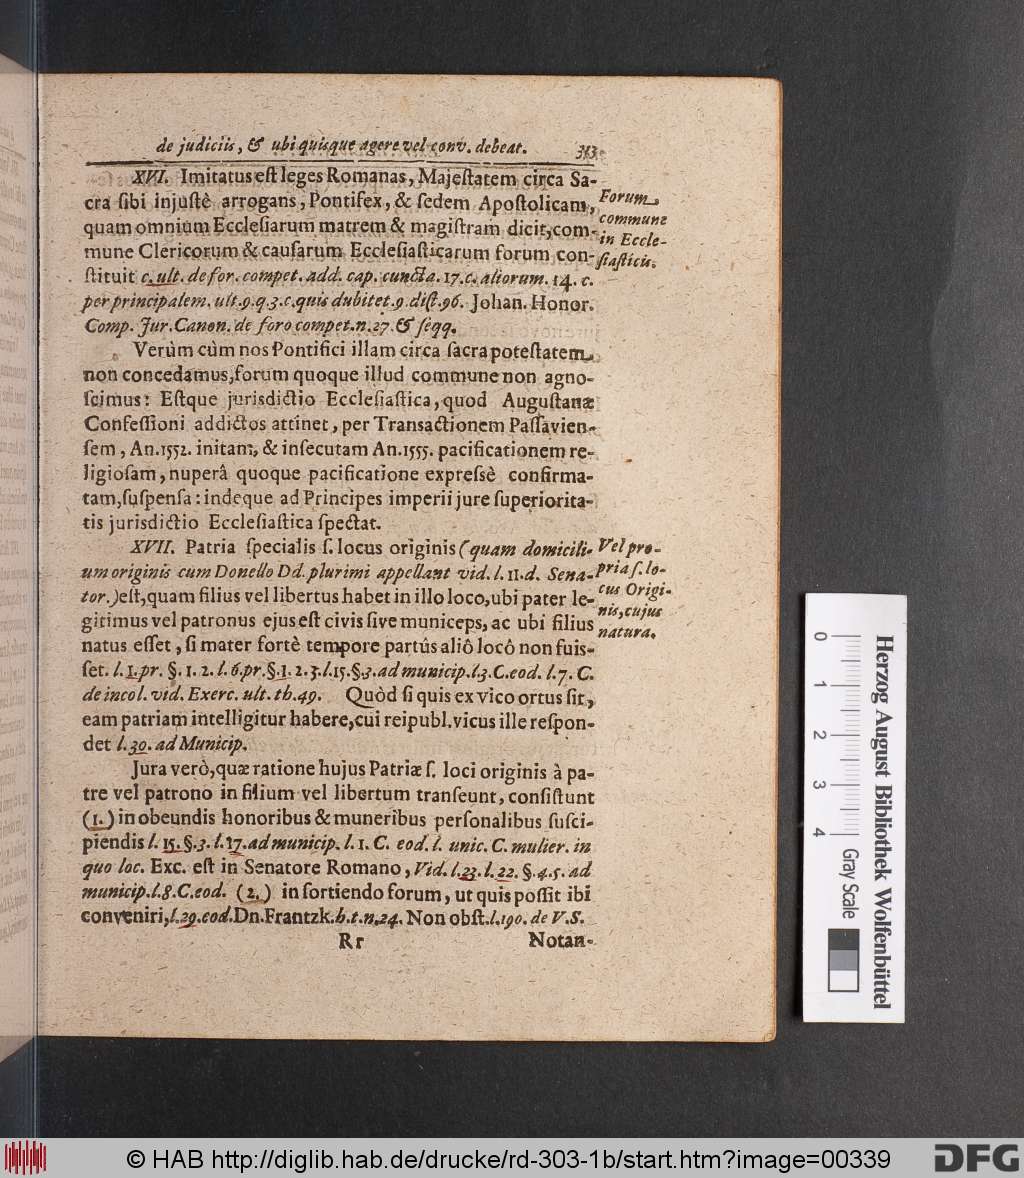 de judiciis, & ubi quisque agere vel conv. debeat. 313
XVI. Imitatus eſt leges Romanas, Majeſtatem circa Sa-
cra ſibi injuſtè arrogans, Pontifex, & ſedem Apoſtolicam,
quam omnium Eccleſiarum matrem & magiſtram dicit, com-
mune Clericorum & cauſarum Eccleſiaſticarum forum con-
ſtituit c. ult. de for. compet. add. cap. cuncta. 17. c. aliorum. 14. c.
per principalem. ult. 9. q. 3. c. quis dubitet. 9. diſt. 96. Johan. Honor.
Comp. Jur. Canon. de foro compet. n. 27. & ſeqq.
Forum
commune
in Eccle-
ſiaſticis.
Verùm cùm nos Pontifici illam circa ſacra poteſtatem
non concedamus, forum quoque illud commune non agno-
ſcimus: Eſtque jurisdictio Eccleſiaſtica, quod Auguſtanæ
Confeſſioni addictos attinet, per Transactionem Paſſavien-
ſem, An. 1552. initam, & inſecutam An. 1555. pacificationem re-
ligioſam, nuperâ quoque pacificatione expreſsè confirma-
tam, ſuſpenſa: indeque ad Principes imperii jure ſuperiorita-
tis jurisdictio Eccleſiaſtica ſpectat.
XVII. Patria ſpecialis ſ. locus originis (quam domicili-
um originis cum Donello Dd. plurimi appellant vid. l. 11. d. Sena-
tor.) eſt, quam filius vel libertus habet in illo loco, ubi pater le-
gitimus vel patronus ejus eſt civis ſive municeps, ac ubi filius
natus eſſet, ſi mater fortè tempore partûs aliô locô non fuis-
ſet. l. 1. pr. §. 1. 2. l. 6. pr. §. 1. 2. 3. l. 15. §. 3. ad municip. l. 3. C. eod. l. 7. C.
de incol. vid. Exerc. ult. th. 49. Quòd ſi quis ex vico ortus ſit,
eam patriam intelligitur habere, cui reipubl. vicus ille reſpon-
det l. 30. ad Municip.
Vel pro-
pria ſ. lo-
cus Origi-
nis, cujus
natura.
Jura verò, quæ ratione hujus Patriæ ſ. loci originis à pa-
tre vel patrono in filium vel libertum tranſeunt, conſiſtunt
(1.) in obeundis honoribus & muneribus perſonalibus ſuſci-
piendis l. 15. §. 3. l. 17. ad municip. l. 1. C. eod. l. unic. C. mulier. in
quo loc. Exc. eſt in Senatore Romano, Vid. l. 23. l. 22. §. 4. 5. ad
municip. l. 8. C. eod. (2.) in ſortiendo forum, ut quis poſſit ibi
conveniri, l. 29. eod. Dn. Frantzk. h. t. n. 24. Non obſt. l. 190. de V. S.
Rr Notan-
0 1 2 3 4
Herzog August Bibliothek Wolfenbüttel
Gray Scale
© HAB http://diglib.hab.de/drucke/rd-303-1b/start.htm?image=00339
DFG